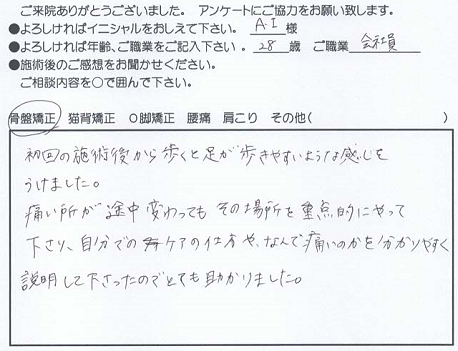 ご来院ありがとうございました。 アンケートにご協力をお願い致します。
●よろしければイニシャルをおしえて下さい。 A.I 様
●よろしければ年齢、ご職業をご記入下さい。 28 歳 ご職業 会社員
●施術後のご感想をお聞かせください。
ご相談内容を○で囲んで下さい。
骨盤矯正 猫背矯正 O脚矯正 腰痛 肩こり その他( )
初回の施術後から歩くと足が歩きやすいような感じを
うけました。
痛い所が途中変わっても その場所を重点的にやって
下さり、自分での ケアの仕方や、なんで痛いのかを分かりやすく
説明して下さったのでとても助かりました。